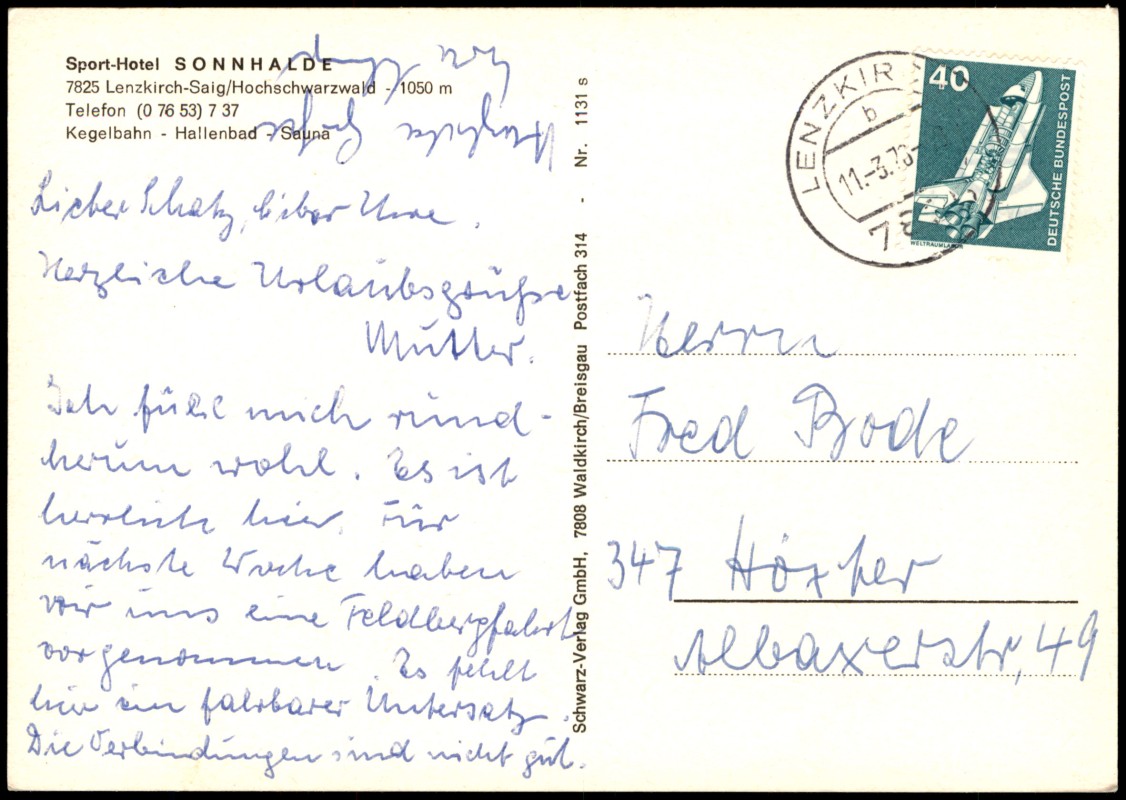 Sport-Hotel SONNHALDE
7825 Lenzkirch-Saig/Hochschwarzwald - 1050 m
Telefon (0 76 53) 7 37
Kegelbahn - Hallenbad - Sauna
Lieber Schatz, lieber Uwe,
Herzliche Urlaubsgrüße
Mutter.
Ich fühle mich rund-
herum wohl. Es ist
herrlich hier. Für
nächste Woche haben
wir uns eine Feldbergfahrt
vorgenommen. Es fehlt
hier ein fahrbarer Untersatz.
Die Verbindungen sind nicht gut.
Schwarz-Verlag GmbH, 7808 Waldkirch/Breisgau Postfach 314 - Nr. 1131 s
LENZKIRCH
b
11.-3.76
40
DEUTSCHE BUNDESPOST
WELTRAUMLABOR
Herrn
Fred Bode
347 Höxter
Albaxerstr. 49